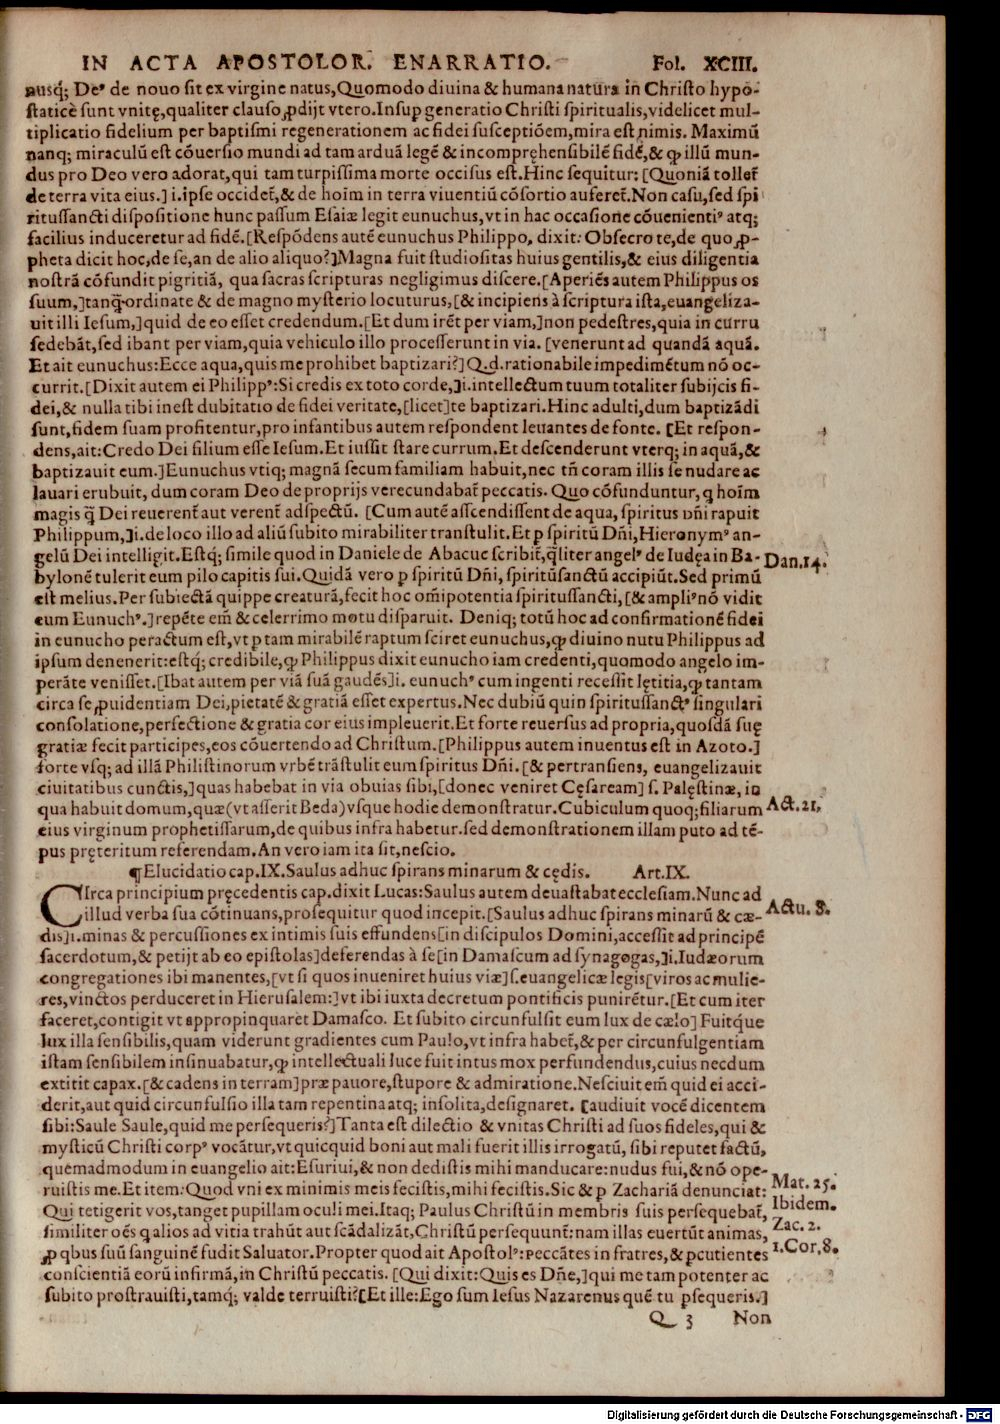 IN ACTA APOSTOLOR. ENARRATIO. Fol. XCIII.
nusq́; Deꝰ de nouo sit ex virgine natus, Quomodo diuina & humana natura in Christo hypo-
staticè sunt vnitę, qualiter clauso ꝓdijt vtero. Insup generatio Christi spiritualis, videlicet mul-
tiplicatio fidelium per baptismi regenerationem ac fidei susceptiõem, mira est nimis. Maximũ
nanq; miraculũ est cõuersio mundi ad tam arduã legẽ & incompręhensibilẽ fidẽ, & ꝙ illũ mun-
dus pro Deo vero adorat, qui tam turpissima morte occisus est. Hinc sequitur: [Quoniã tolletˀ
de terra vita eius.] i. ipse occidetˀ, & de hoīm in terra viuentiũ cõsortio auferetˀ. Non casu, sed spi
ritussancti dispositione hunc passum Esaiæ legit eunuchus, vt in hac occasione cõuenientiꝰ atq;
facilius induceretur ad fidẽ. [Respõdens autẽ eunuchus Philippo, dixit: Obsecro te, de quo ꝓ-
pheta dicit hoc, de se, an de alio aliquo?] Magna fuit studiositas huius gentilis, & eius diligentia
nostrã cõfundit pigritiã, qua sacras scripturas negligimus discere. [Aperiẽs autem Philippus os
suum,] tanq̃ ordinate & de magno mysterio locuturus, [& incipiens à scriptura ista, euangeliza-
uit illi Iesum,] quid de eo esset credendum. [Et dum irẽt per viam,] non pedestres, quia in curru
sedebãt, sed ibant per viam, quia vehiculo illo processerunt in via. [venerunt ad quandã aquã.
Et ait eunuchus: Ecce aqua, quis me prohibet baptizari?] Q.d. rationabile impedimẽtum nõ oc-
currit. [Dixit autem ei Philippꝰ: Si credis ex toto corde,] i. intellectum tuum totaliter subijcis fi-
dei, & nulla tibi inest dubitatio de fidei veritate, [licet] te baptizari. Hinc adulti, dum baptizãdi
sunt, fidem suam profitentur, pro infantibus autem respondent leuantes de fonte. [Et respon-
dens, ait: Credo Dei filium esse Iesum. Et iussit stare currum. Et descenderunt vterq; in aquã, &
baptizauit eum.] Eunuchus vtiq; magnã secum familiam habuit, nec tñ coram illis se nudare ac
lauari erubuit, dum coram Deo de proprijs verecundabatˀ peccatis. Quo cõfunduntur, q hoīm
magis q̃ Dei reuerentˀ aut verentˀ adspectũ. [Cum autẽ ascendissent de aqua, spiritus dñi rapuit
Philippum,] i. de loco illo ad aliũ subito mirabiliter transtulit. Et ꝑ spiritũ Dñi, Hieronymꝰ an-
gelũ Dei intelligit. Estq; simile quod in Daniele de Abacuc scribitˀ, q̃liter angelꝰ de Iudęa in Ba-
Dan. 14.
bylonẽ tulerit eum pilo capitis sui. Quidã vero ꝑ spiritũ Dñi, spiritũsanctũ accipiũt. Sed primũ
est melius. Per subiectã quippe creaturã, fecit hoc om̃ipotentia spiritussancti, [& ampliꝰ nõ vidit
eum Eunuchꝰ.] repẽte em̃ & celerrimo motu disparuit. Deniq; totũ hoc ad confirmationẽ fidei
in eunucho peractum est, vt ꝑ tam mirabilẽ raptum sciret eunuchus, ꝙ diuino nutu Philippus ad
ipsum deuenerit: estq́; credibile, ꝙ Philippus dixit eunucho iam credenti, quomodo angelo im-
perãte venisset. [Ibat autem per viã suã gaudẽs] i. eunuchꝰ cum ingenti recessit lętitia, ꝙ tantam
circa se ꝓuidentiam Dei, pietatẽ & gratiã esset expertus. Nec dubiũ quin spiritussanctꝰ singulari
consolatione, perfectione & gratia cor eius impleuerit. Et forte reuersus ad propria, quosdã suę
gratiæ fecit participes, eos cõuertendo ad Christum. [Philippus autem inuentus est in Azoto.]
forte vsq; ad illã Philistinorum vrbẽ trãstulit eum spiritus Dñi. [& pertransiens, euangelizauit
ciuitatibus cunctis,] quas habebat in via obuias sibi, [donec veniret Cęsaream] s. Palęstinæ, in
qua habuit domum, quæ (vt asserit Beda) vsque hodie demonstratur. Cubiculum quoq; filiarum
Act. 21.
eius virginum prophetissarum, de quibus infra habetur. sed demonstrationem illam puto ad tẽ-
pus pręteritum referendam. An vero iam ita sit, nescio.
¶ Elucidatio cap. IX. Saulus adhuc spirans minarum & cędis. Art. IX.
CIrca principium pręcedentis cap. dixit Lucas: Saulus autem deuastabat ecclesiam. Nunc ad
illud verba sua cõtinuans, prosequitur quod incepit. [Saulus adhuc spirans minarũ & cæ-
Actu. 8.
dis] i. minas & percussiones ex intimis suis effundens [in discipulos Domini, accessit ad principẽ
sacerdotum, & petijt ab eo epistolas] deferendas à se [in Damascum ad synagogas,] i. Iudæorum
congregationes ibi manentes, [vt si quos inueniret huius viæ] s. euangelicæ legis [viros ac mulie-
res, vinctos perduceret in Hierusalem:] vt ibi iuxta decretum pontificis punirẽtur. [Et cum iter
faceret, contigit vt appropinquaret Damasco. Et subito circunfulsit eum lux de cælo] Fuitque
lux illa sensibilis, quam viderunt gradientes cum Paulo, vt infra habetˀ, & per circunfulgentiam
istam sensibilem insinuabatur, ꝙ intellectuali luce fuit intus mox perfundendus, cuius necdum
extitit capax. [& cadens in terram] præ pauore, stupore & admiratione. Nesciuit em̃ quid ei acci-
derit, aut quid circunfulsio illa tam repentina atq; insolita, designaret. [audiuit vocẽ dicentem
sibi: Saule Saule, quid me persequeris?] Tanta est dilectio & vnitas Christi ad suos fideles, qui &
mysticũ Christi corpꝰ vocãtur, vt quicquid boni aut mali fuerit illis irrogatũ, sibi reputet factũ,
quemadmodum in euangelio ait: Esuriui, & non dedistis mihi manducare: nudus fui, & nõ ope-
Mat. 25.
ruistis me. Et item: Quod vni ex minimis meis fecistis, mihi fecistis. Sic & ꝑ Zachariã denunciat:
Ibidem.
Qui tetigerit vos, tanget pupillam oculi mei. Itaq; Paulus Christũ in membris suis persequebatˀ,
Zac. 2.
similiter oẽs q alios ad vitia trahũt aut scãdalizãt, Christũ persequuntˀ: nam illas euertũt animas,
ꝓ qbus suũ sanguinẽ fudit Saluator. Propter quod ait Apostolꝰ: peccãtes in fratres, & ꝑcutientes
1. Cor. 8.
conscientiã eorũ infirmã, in Christũ peccatis. [Qui dixit: Quis es Dñe,] qui me tam potenter ac
subito prostrauisti, tamq́; valde terruisti? [Et ille: Ego sum Iesus Nazarenus quẽ tu ꝑsequeris.]
Q 3 Non
Digitalisierung gefördert durch die Deutsche Forschungsgemeinschaft - DFG